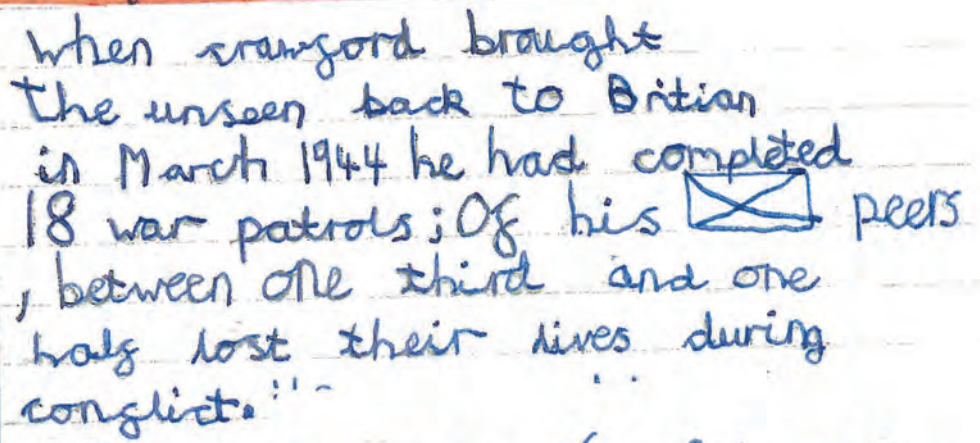 When crawford brought
The unseen back to Britian
in March 1944 he had completed
18 war patrols; Of his peers
, between one third and one
half lost their lives during
conflict."